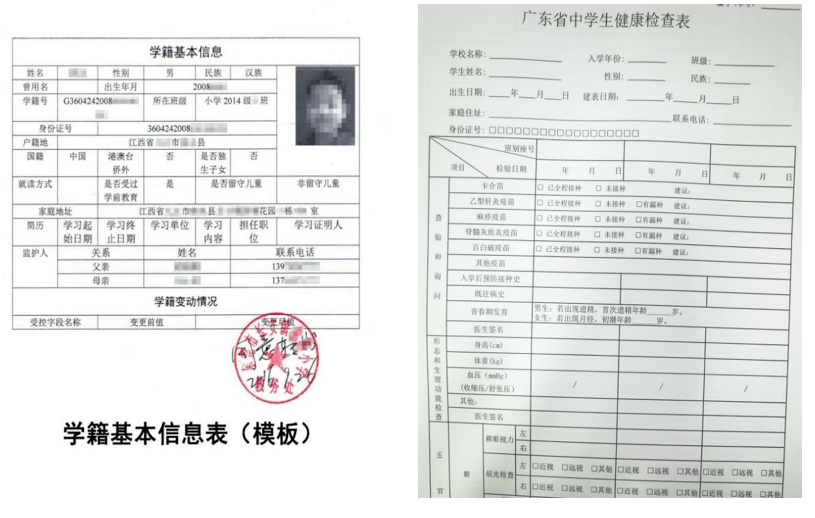 学籍基本信息
姓名 性别 男 民族 汉族
曾用名 出生年月 2008
学籍号 G3604242008 所在班级 小学 2014 级 班
身份证号 3604242008
户籍地 江西省 市 县
国籍 中国 港澳台侨外 否 是否独生子女 否
就读方式 是否受过学前教育 是 是否留守儿童 非留守儿童
家庭地址 江西省 市 县 花园 栋 室
简历 学习起始日期 学习终止日期 学习单位 学习内容 担任职位 学习证明人
监护人 关系 姓名 联系电话
父亲 139
母亲 137
学籍变动情况
受控字段名称 变更前值 变更后值
教务处
学籍基本信息表（模板）
广东省中学生健康检查表
学校名称： 入学年份： 班级：
学生姓名： 性别： 民族：
出生日期： 年 月 日 建表日期： 年 月 日
家庭住址： 联系电话：
身份证号：□□□□□□□□□□□□□□□□□□
班级座号
项目 检验日期 年 月 日 年 月 日 年 月 日
查验和询问
卡介苗 □ 已全程接种 □ 未接种 建议：
乙型肝炎疫苗 □ 已全程接种 □ 未接种 □有漏种 建议：
麻疹疫苗 □ 已全程接种 □ 未接种 □有漏种 建议：
脊髓灰质炎疫苗 □ 已全程接种 □ 未接种 □有漏种 建议：
百白破疫苗 □ 已全程接种 □ 未接种 □有漏种 建议：
其他疫苗
入学后预防接种史
既往病史
青春期发育 男生：若出现遗精，首次遗精年龄 岁。
女生：若出现月经，初潮年龄 岁。
医生签名
形态和生理功能检查
身高(cm)
体重(kg)
血压（mmHg）
(收缩压/舒张压) / / /
其他：
医生签名
五官
眼
裸眼视力 左
右
屈光检查 左 □近视 □远视 □其他 □近视 □远视 □其他 □近视 □远视 □其他
右 □近视 □远视 □其他 □近视 □远视 □其他 □近视 □远视 □其他